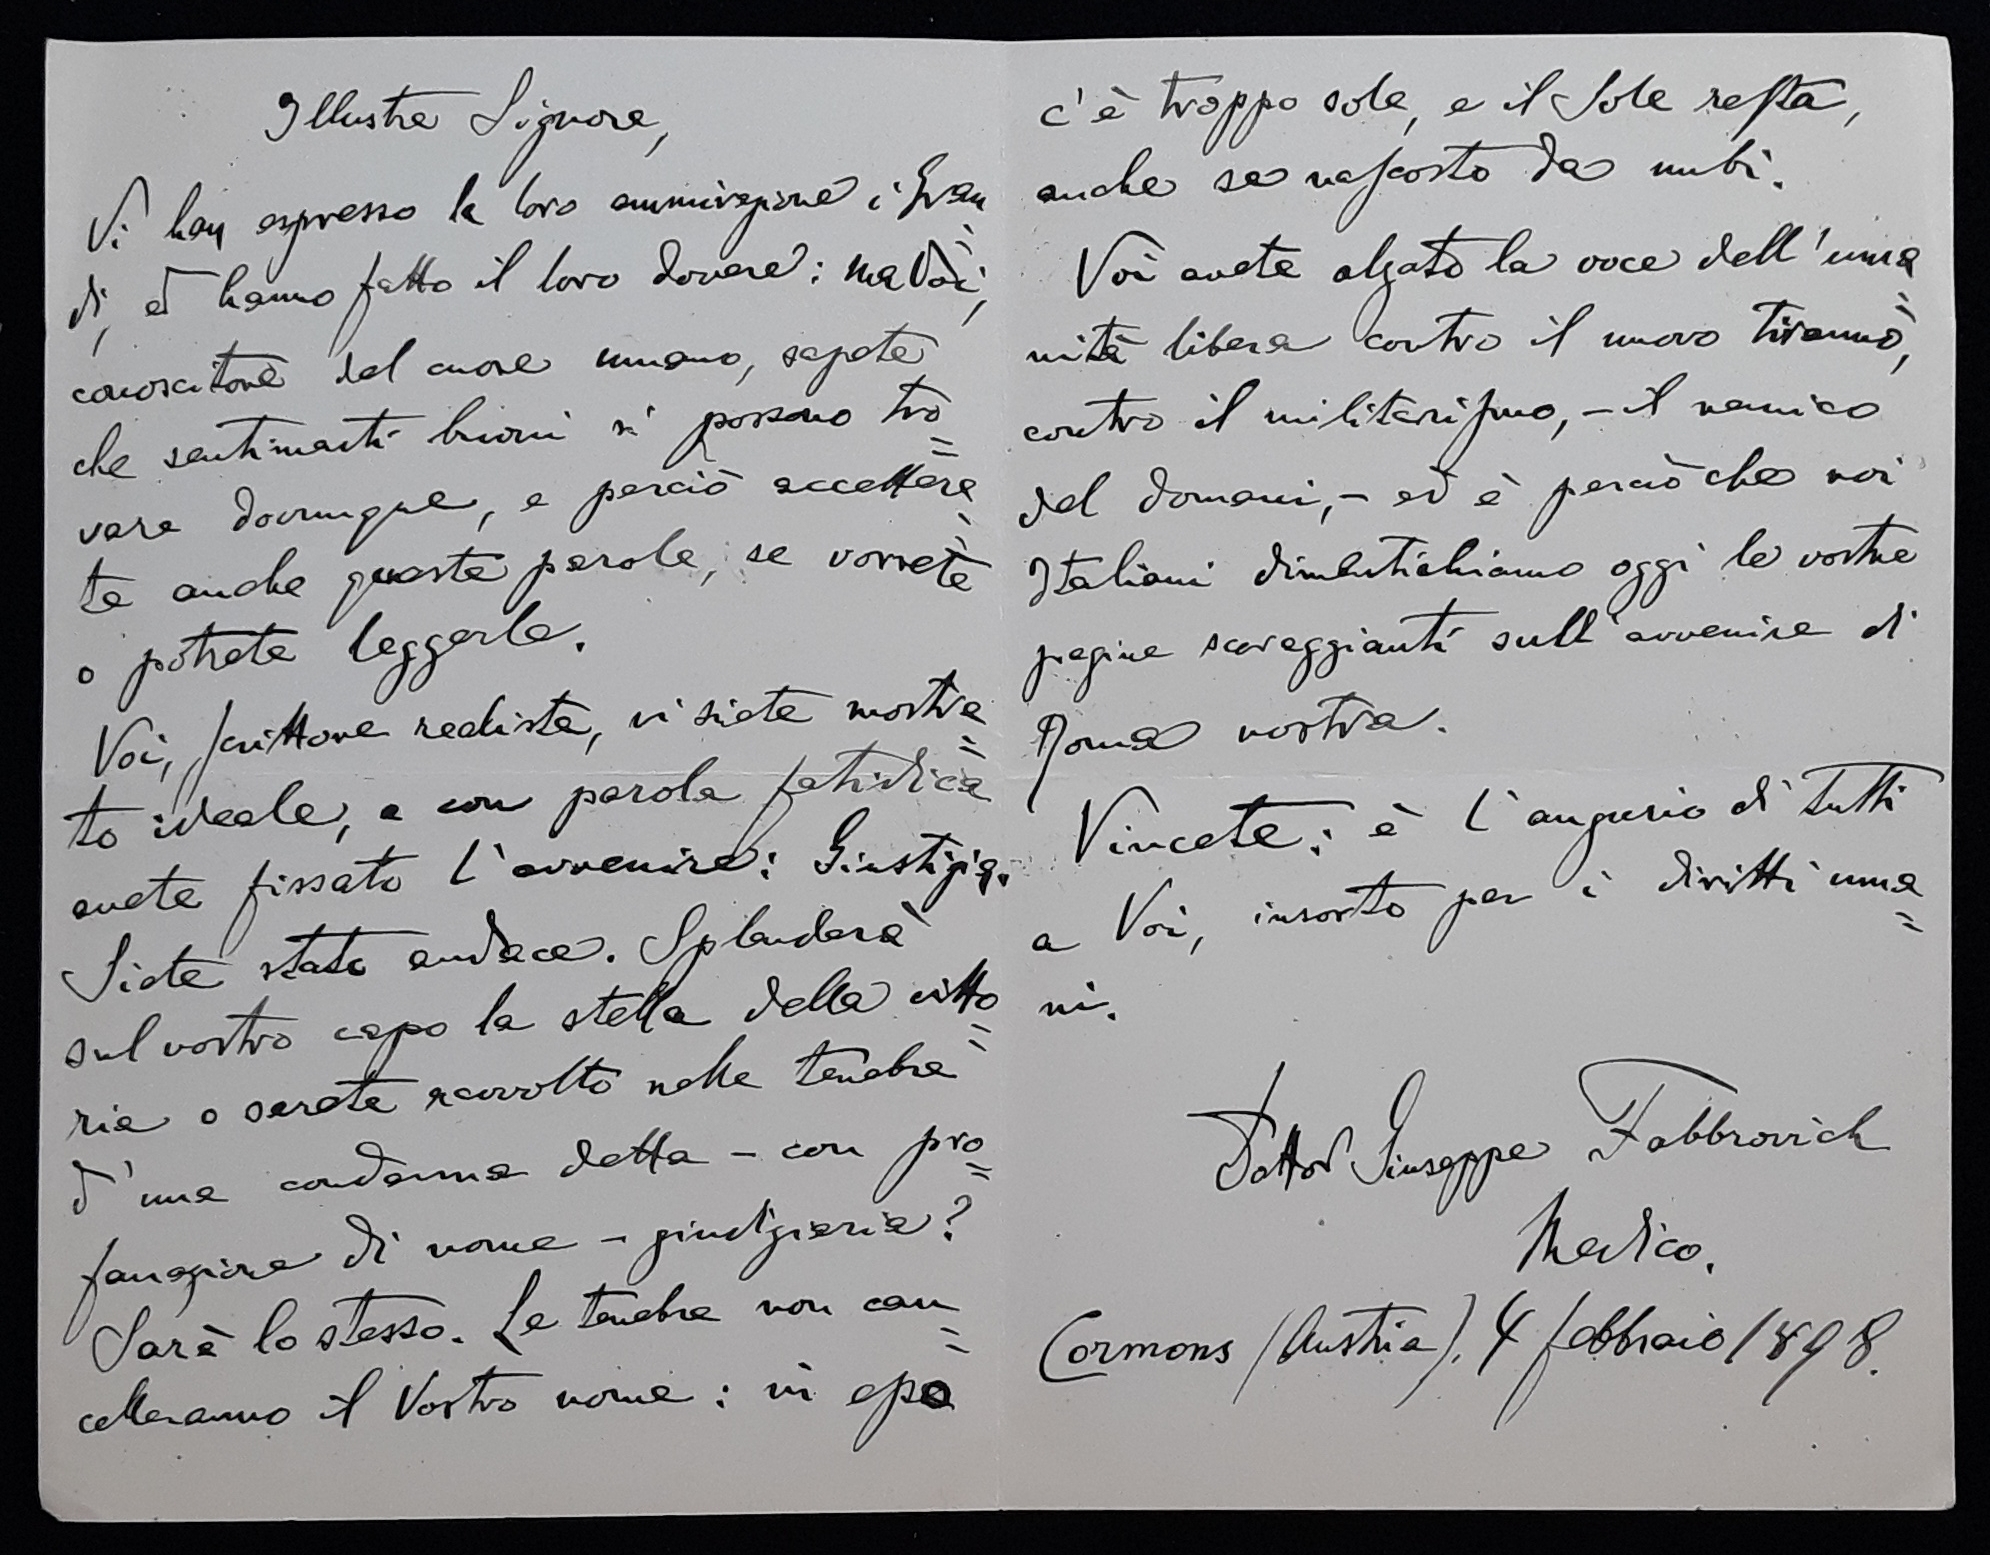 Illustre Signore,
Vi han espresso la loro ammirazione i Gran=
di, ed hanno fatto il loro dovere: ma Voi,
conoscitore del cuore umano, sapete
che sentimenti buoni si possono tro=
vare dovunque, e perciò accettere=
te anche queste parole, se vorrete
o potrete leggerle.
Voi, scrittore realista, vi siete mostra=
to ideale, e con parola fatidica
avete fissato l'avvenire: Giustizia.
Siete stato audace. Splenderà
sul vostro capo la stella della vitto=
ria o sarete ravvolto nelle tenebre
d'una condanna detta – con pro=
fanazione di nome – giudiziaria?
Sarà lo stesso. Le tenebre non can=
celleranno il Vostro nome: in
c'è troppo sole, e il Sole resta,
anche se nascosto da nubi.
Voi avete alzato la voce dell'uma=
nità libera contro il nuovo tiranno,
contro il militarismo, – il nemico
del domani, – ed è perciò che noi
Italiani dimentichiamo oggi le vostre
pagine scoraggianti sull'avvenire di
Roma nostra.
Vincete: è l'augurio di tutti
a Voi, insorto per i diritti uma=
ni.
Dottor Giuseppe Fabbrovich
Medico.
Cormons (Austria), 4 febbraio 1898.